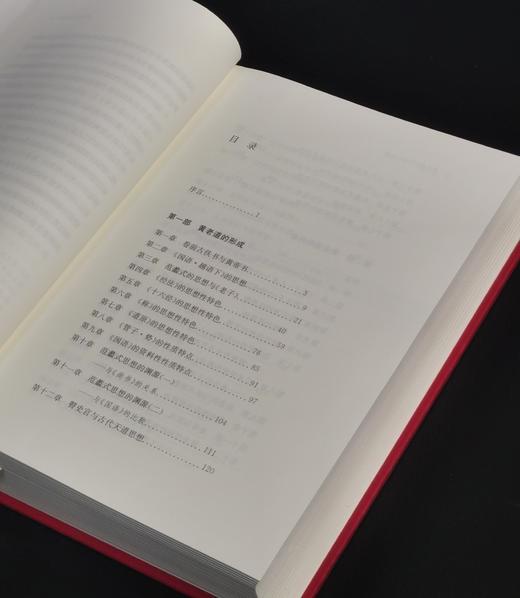 目 录
序言............1
第一部 黄老道的形成
第一章 卷前古佚书与黄帝书............3
第二章 《国语·越语下》的思想............9
第三章 范蠡式的思想与《老子》............21
第四章 《经法》的思想性特色............40
第五章 《十六经》的思想性特色............59
第六章 《称》的思想性特色............76
第七章 《道原》的思想性特色............85
第八章 《管子·势》的性质特点............91
第九章 《国语》的资料性性质特点............97
第十章 范蠡式思想的渊源(一)
——与《左传》的关系............104
第十一章 范蠡式思想的渊源(二)
——与《国语》的比较............111
第十二章 瞽史官与古代天道思想............120